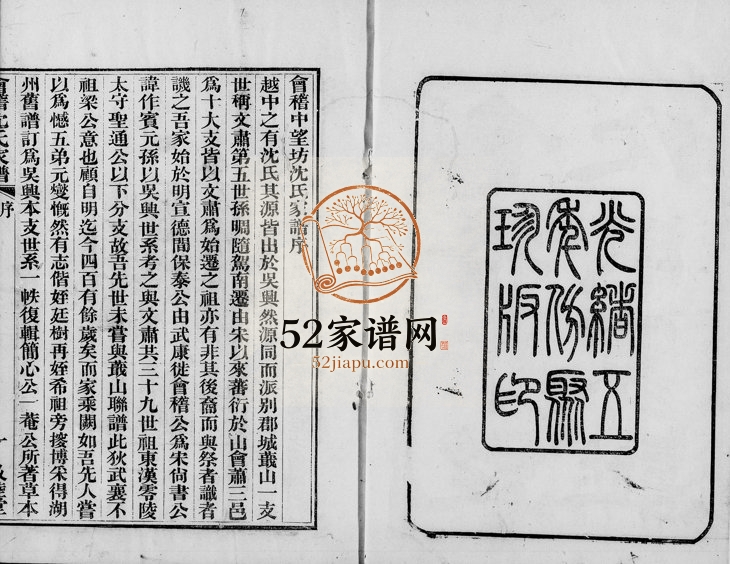 光緒五
季仿聚
珍版印
會稽中望坊沈氏家譜序
越中之有沈氏其源皆出於吳興然源同而派別郡城蕺山一支
世稱文肅第五世孫啁隨駕南遷由宋以來蕃衍於山會蕭三邑
爲十大支皆以文肅爲始遷之祖亦有非其後裔而與祭者識者
譏之吾家始於明宣德間保泰公由武康徙會稽公爲宋尚書公
諱作賓元孫以吳興世系考之與文肅共三十九世祖東漢零陵
太守聖通公以下分支故吾先世未嘗與蕺山聯譜此狄武襄不
祖梁公意也顧自明迄今四百有餘歲矣而家乘闕如吾先人嘗
以爲憾五弟元燮慨然有志偕姪廷樹再姪希祖旁搜博采得湖
州舊譜訂爲吳興本支世系一帙復輯簡心公一菴公所著草本
會稽沈氏家譜
序
一
52家谱网
52jiapu.com